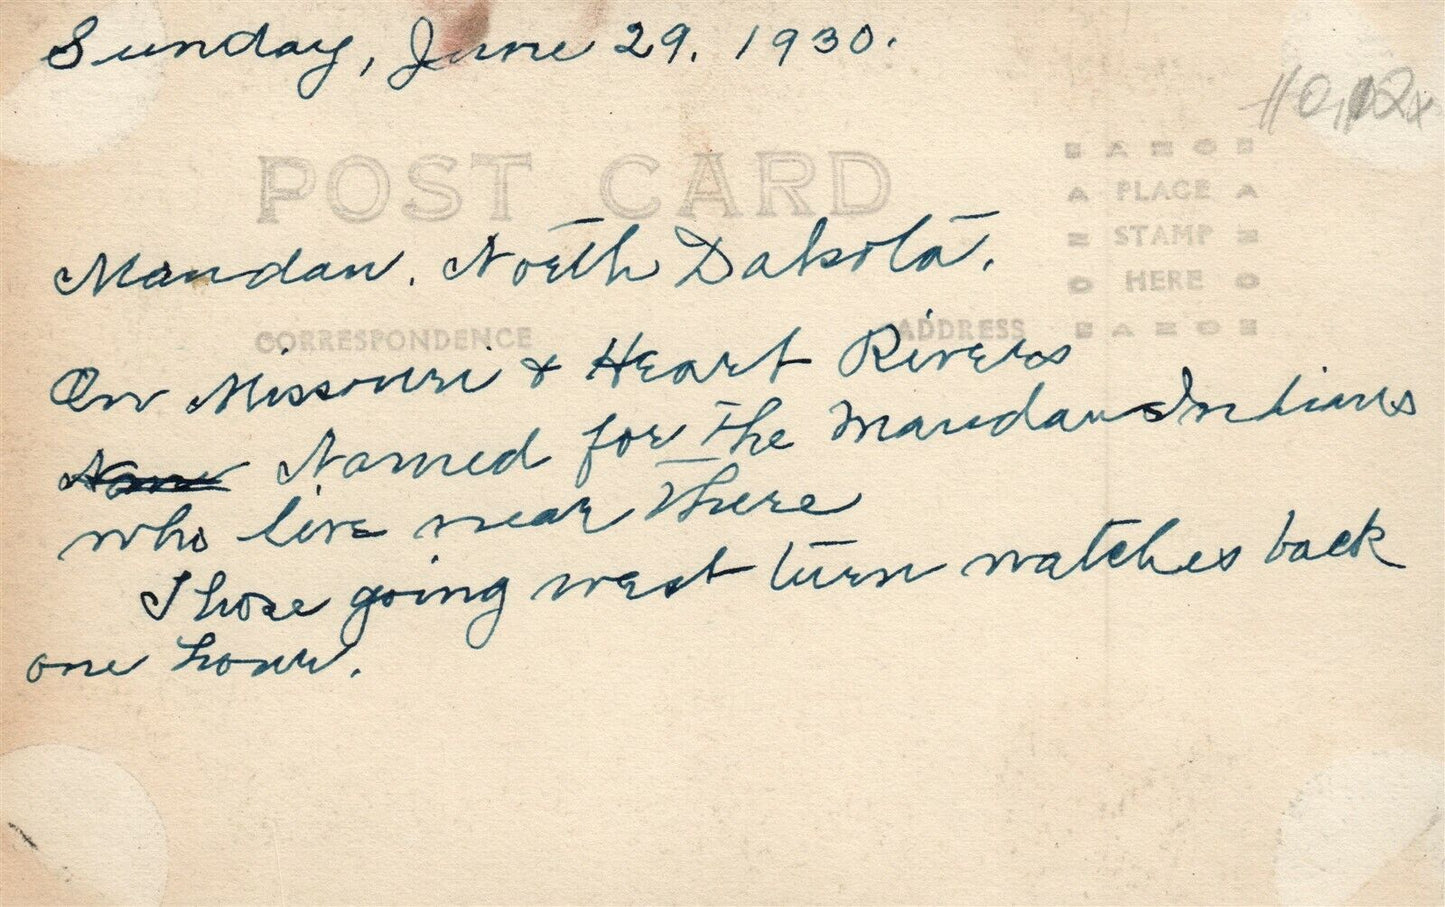 Sunday, June 29, 1930.
POST CARD
AZO
PLACE
STAMP
HERE
Mandan, North Dakota.
CORRESPONDENCE
ADDRESS
On Missouri & Heart Rivers
Named for the Mandans Indians
who live near there
Those going west turn watches back
one hour.